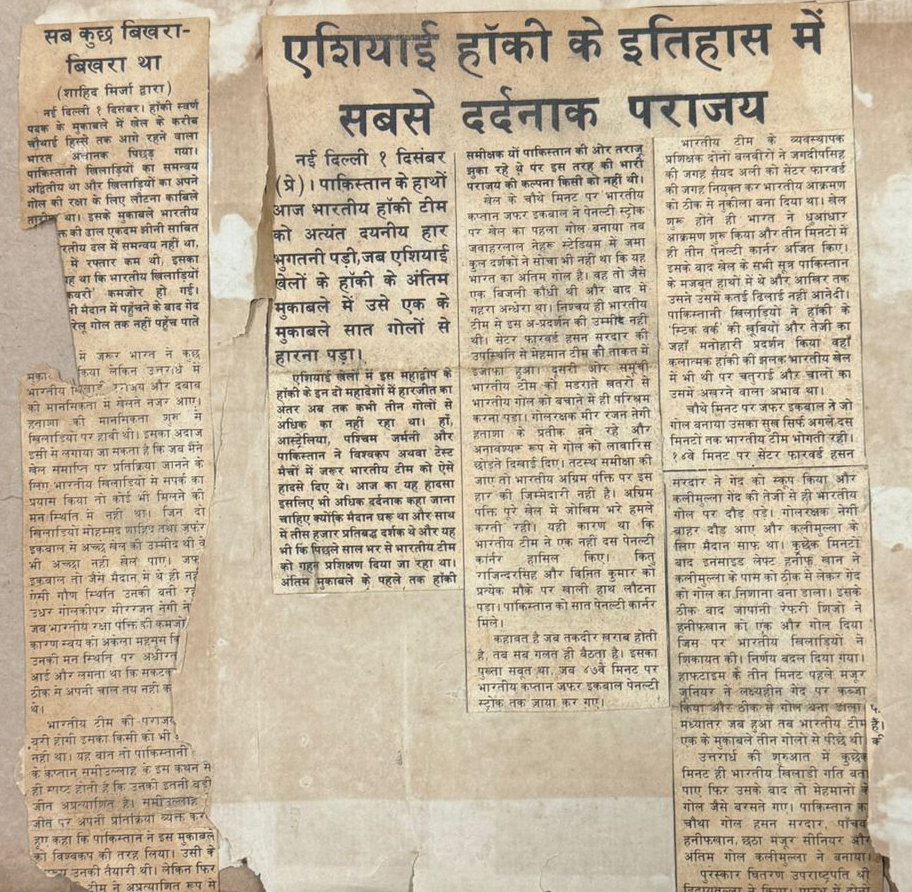 सब कुछ बिखरा-
बिखरा था
(शाहिद मिर्जा द्वारा)
नई दिल्ली १ दिसंबर। हॉकी स्वर्ण
पदक के मुकाबले में खेल के करीब
चौथाई हिस्से तक आगे रहने वाला
भारत अचानक पिछड़ गया।
पाकिस्तानी खिलाड़ियों का समन्वय
अद्वितीय था और खिलाड़ियों का अपने
गोल की रक्षा के लिए लौटना काबिले
तारीफ था। इसके मुकाबले भारतीय
की ढाल एकदम झीनी साबित
रतीय दल में समन्वय नहीं था,
में रफ्तार कम थी, इसका
ह था कि भारतीय खिलाड़ियों
कवरी' कमजोर हो गई।
मैदान में पहुँचने के बाद गेंद
गोल तक नहीं पहुँच पाते
में जरूर भारत ने कुछ
किये लेकिन उत्तरार्ध में
भारतीय और दबाव
की मानसिकता में खेलते नजर आए।
हताशा की मानसिकता शुरू से
खिलाड़ियों पर हावी थी। इसका अंदाज
इसी से लगाया जा सकता है कि जब मैंने
खेल समाप्ति पर प्रतिक्रिया जानने के
लिए भारतीय खिलाड़ियों से संपर्क का
प्रयास किया तो कोई भी मिलने की
मन:स्थिति में नहीं था। जिन दो
खिलाड़ियों मोहम्मद शाहिद तथा जफर
इकबाल से अच्छे खेल की उम्मीद थी वे
भी अच्छा नहीं खेल पाए। जफ
इकबाल तो जैसे मैदान में थे ही नह
ऐसी गौण स्थिति उनकी बनी रह
उधर गोलकीपर मीररंजन नेगी ने
जब भारतीय रक्षा पंक्ति की कमजो
कारण स्वयं को अकेला महसूस कि
उनकी मन स्थिति पर अधीरत
आई और लगता था कि संकटक
ठीक से अपनी चाल तय नहीं क
थे।
भारतीय टीम की पराजय
बुरी होगी इसका किसी को भी
नहीं था। यह बात तो पाकिस्तानी
के कप्तान समीउल्लाह के इस कथन से
ही स्पष्ट होती है कि उनकी इतनी बड़ी
जीत अप्रत्याशित है। समीउल्लाह
जीत पर अपनी प्रतिक्रिया व्यक्त कर
हुए कहा कि पाकिस्तान ने इस मुकाबले
को विश्वकप की तरह लिया। उसी के
उनकी तैयारी थी। लेकिन फिर
टीम ने अप्रत्याशित रूप से
एशियाई हॉकी के इतिहास में
सबसे दर्दनाक पराजय
नई दिल्ली १ दिसंबर
(प्रे)। पाकिस्तान के हाथों
आज भारतीय हॉकी टीम
को अत्यंत दयनीय हार
भुगतनी पड़ी,जब एशियाई
खेलों के हॉकी के अंतिम
मुकाबले में उसे एक के
मुकाबले सात गोलों से
हारना पड़ा।
एशियाई खेलों में इस महाद्वीप के
हॉकी के इन दो महादेशों में हारजीत का
अंतर अब तक कभी तीन गोलों से
अधिक का नहीं रहा था। हाँ,
आस्ट्रेलिया, पश्चिम जर्मनी और
पाकिस्तान ने विश्वकप अथवा टेस्ट
मैचों में जरूर भारतीय टीम को ऐसे
हादसे दिए थे। आज का यह हादसा
इसलिए भी अधिक दर्दनाक कहा जाना
चाहिए क्योंकि मैदान घरू था और साथ
में तीस हजार प्रतिबद्ध दर्शक थे और यह
भी कि पिछले साल भर से भारतीय टीम
को गहन प्रशिक्षण दिया जा रहा था।
अंतिम मुकाबले के पहले तक हॉकी
समीक्षक यों पाकिस्तान की ओर तराजू
झुका रहे थे पर इस तरह की भारी
पराजय की कल्पना किसी को नहीं थी।
खेल के चौथे मिनट पर भारतीय
कप्तान जफर इकबाल ने पेनल्टी स्ट्रोक
पर खेल का पहला गोल बनाया तब
जवाहरलाल नेहरू स्टेडियम में जमा
कुल दर्शकों ने सोचा भी नहीं था कि यह
भारत का अंतिम गोल है। वह तो जैसे
एक बिजली कौंधी थी और बाद में
गहरा अन्धेरा था। निश्चय ही भारतीय
टीम से इस अ-प्रदर्शन की उम्मीद नहीं
थी। सेंटर फारवर्ड हसन सरदार की
उपस्थिति से मेहमान टीम की ताकत में
इजाफा हुआ। दूसरी ओर समूची
भारतीय टीम को मंडराते खतरों से
भारतीय गोल को बचाने में ही परिश्रम
करना पड़ा। गोलरक्षक मीर रंजन नेगी
हताशा के प्रतीक बने रहे और
अनावश्यक रूप से गोल को लावारिस
छोड़ते दिखाई दिए। तटस्थ समीक्षा की
जाए तो भारतीय अग्रिम पंक्ति पर इस
हार की जिम्मेदारी नहीं है। अग्रिम
पंक्ति पूरे खेल में जोखिम भरे हमले
करती रही। यही कारण था कि
भारतीय टीम ने एक नहीं दस पेनल्टी
कार्नर हासिल किए। किंतु
राजिन्दरसिंह और विनित कुमार को
प्रत्येक मौके पर खाली हाथ लौटना
पड़ा। पाकिस्तान को सात पेनल्टी कार्नर
मिले।
कहावत है जब तकदीर खराब होती
है, तब सब गलत ही बैठता है। इसका
पुख्ता सबूत था, जब ४७वें मिनट पर
भारतीय कप्तान जफर इकबाल पेनल्टी
स्ट्रोक तक जाया कर गए।
भारतीय टीम के व्यवस्थापक
प्रशिक्षक दोनों बलबीरों ने जगदीपसिंह
की जगह सैयद अली को सेंटर फारवर्ड
की जगह नियुक्त कर भारतीय आक्रमण
को ठीक से नुकीला बना दिया था। खेल
शुरू होते ही भारत ने धुआंधार
आक्रमण शुरू किया और तीन मिनटों में
ही तीन पेनल्टी कार्नर अर्जित किए।
इसके बाद खेल के सभी सूत्र पाकिस्तान
के मजबूत हाथों में थे और आखिर तक
उसने उसमें कतई ढिलाई नहीं आनेदी।
पाकिस्तानी खिलाड़ियों ने हॉकी के
'स्टिक वर्क' की खूबियों और तेजी का
जहाँ मनोहारी प्रदर्शन किया वहाँ
कलात्मक हॉकी की झलक भारतीय खेल
में भी थी पर चतुराई और चालों का
उसमें अखरने वाला अभाव था।
चौथे मिनट पर जफर इकबाल ने जो
गोल बनाया उसका सुख सिर्फ अगले दस
मिनटों तक भारतीय टीम भोगती रही।
१४वें मिनट पर सेंटर फारवर्ड हसन
सरदार ने गेंद को स्कूप किया और
कलीमुल्ला गेंद की तेजी से ही भारतीय
गोल पर दौड़ पड़े। गोलरक्षक नेगी
बाहर दौड़ आए और कलीमुल्ला के
लिए मैदान साफ था। कुछेक मिनटों
बाद इनसाइड लेफ्ट हनीफ खान ने
कलीमुल्ला के पास को ठीक से लेकर गेंद
को गोल का निशाना बना डाला। इसके
ठीक बाद जापानी रेफरी शिजो ने
हनीफखान को एक और गोल दिया
जिस पर भारतीय खिलाड़ियों ने
शिकायत की। निर्णय बदल दिया गया।
हाफटाइम के तीन मिनट पहले मंजूर
जूनियर ने लक्ष्यहीन गेंद पर कब्जा
किया और ठीक से गोल बना डाला।
मध्यांतर जब हुआ तब भारतीय टीम
एक के मुकाबले तीन गोलों से पीछे थी।
उत्तरार्ध की शुरुआत में कुछेक
मिनट ही भारतीय खिलाड़ी गति बना
पाए फिर उसके बाद तो मेहमानों के
गोल जैसे बरसते गए। पाकिस्तान क
चौथा गोल हसन सरदार, पाँचव
हनीफखान, छठा मंजूर सीनियर और
अंतिम गोल कलीमुल्ला ने बनाया।
पुरस्कार वितरण उपराष्ट्रपति श्री